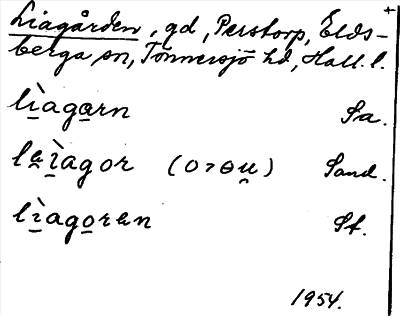 Liagården, gd, Perstorp, Elds-
berga sn, Tönnersjö hd, Hall. l.
lìagarn Sa.
leìagor (o>ɵu) Sand.
lìagorɐn St.
1954.